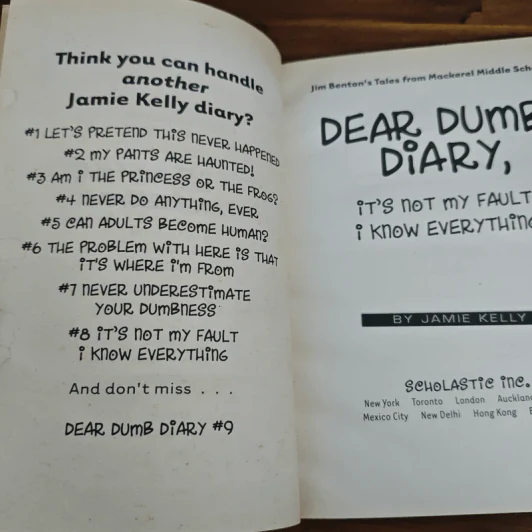 Think you can handle
another
Jamie Kelly diary?
#1 LET'S PRETEND THIS NEVER HAPPENED
#2 MY PANTS ARE HAUNTED!
#3 AM I THE PRINCESS OR THE FROG?
#4 NEVER DO ANYTHING, EVER
#5 CAN ADULTS BECOME HUMAN?
#6 THE PROBLEM WITH HERE IS THAT
IT'S WHERE I'M FROM
#7 NEVER UNDERESTIMATE
YOUR DUMBNESS
#8 IT'S NOT MY FAULT
I KNOW EVERYTHING
And don't miss . . .
DEAR DUMB DIARY #9
Jim Benton's Tales from Mackerel Middle
DEAR DUMB
DIARY,
IT'S NOT MY FAULT
I KNOW EVERYTHING
BY JAMIE KELLY
SCHOLASTIC INC.
New York Toronto London Auckland
Mexico City New Delhi Hong Kong